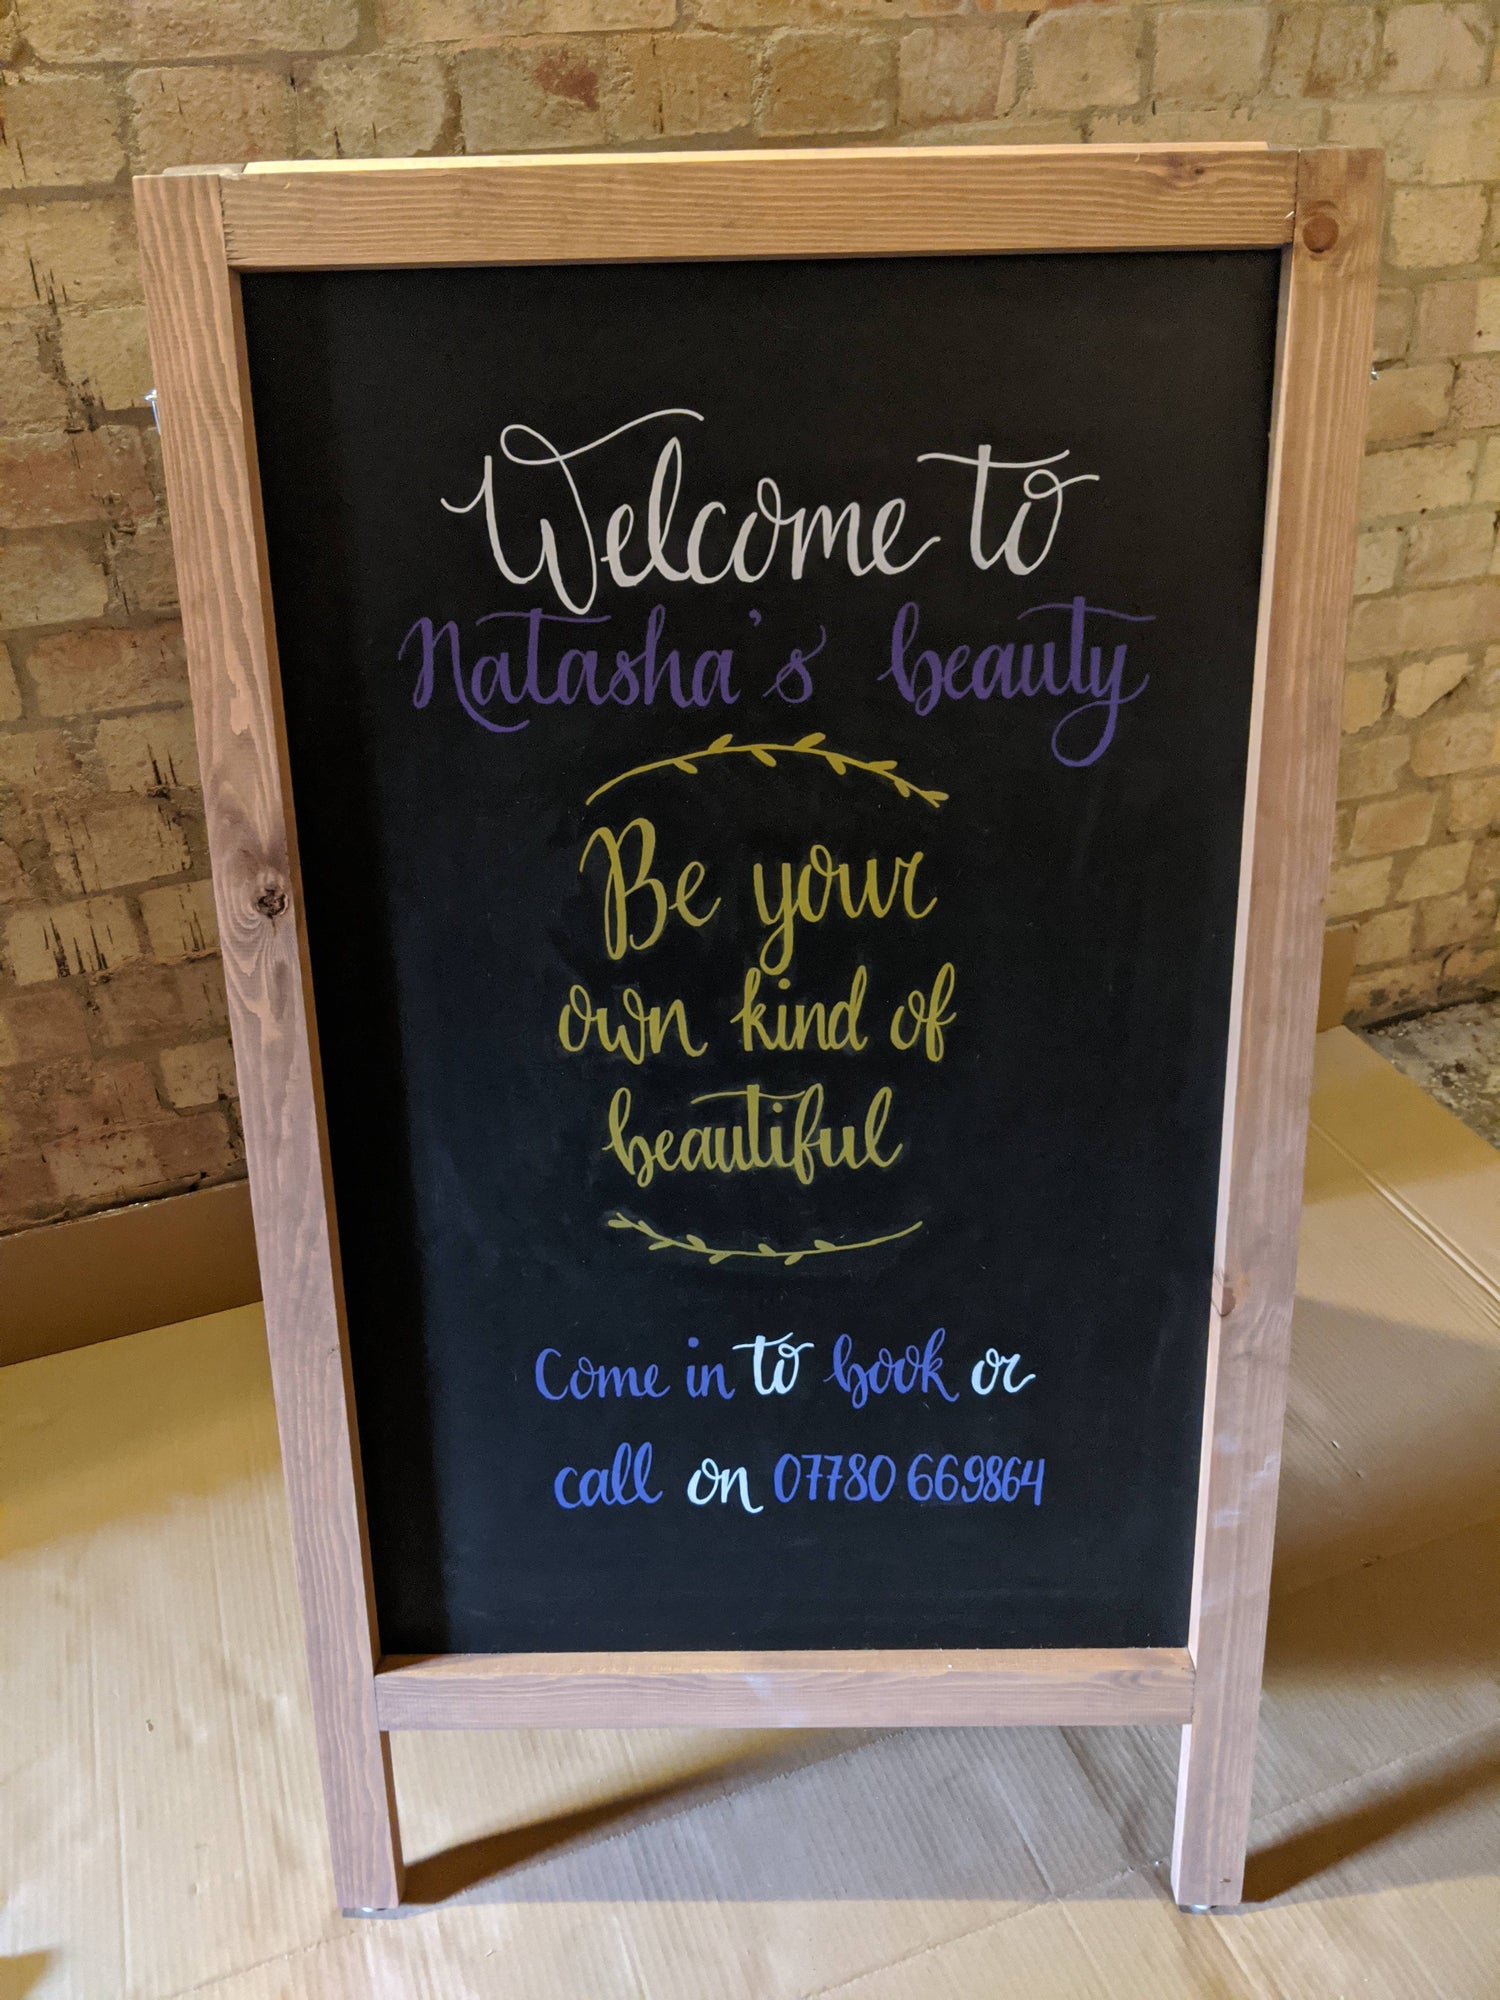 Welcome to
Natasha's beauty
Be your
own kind of
beautiful
Come in to book or
call on 07780 669864